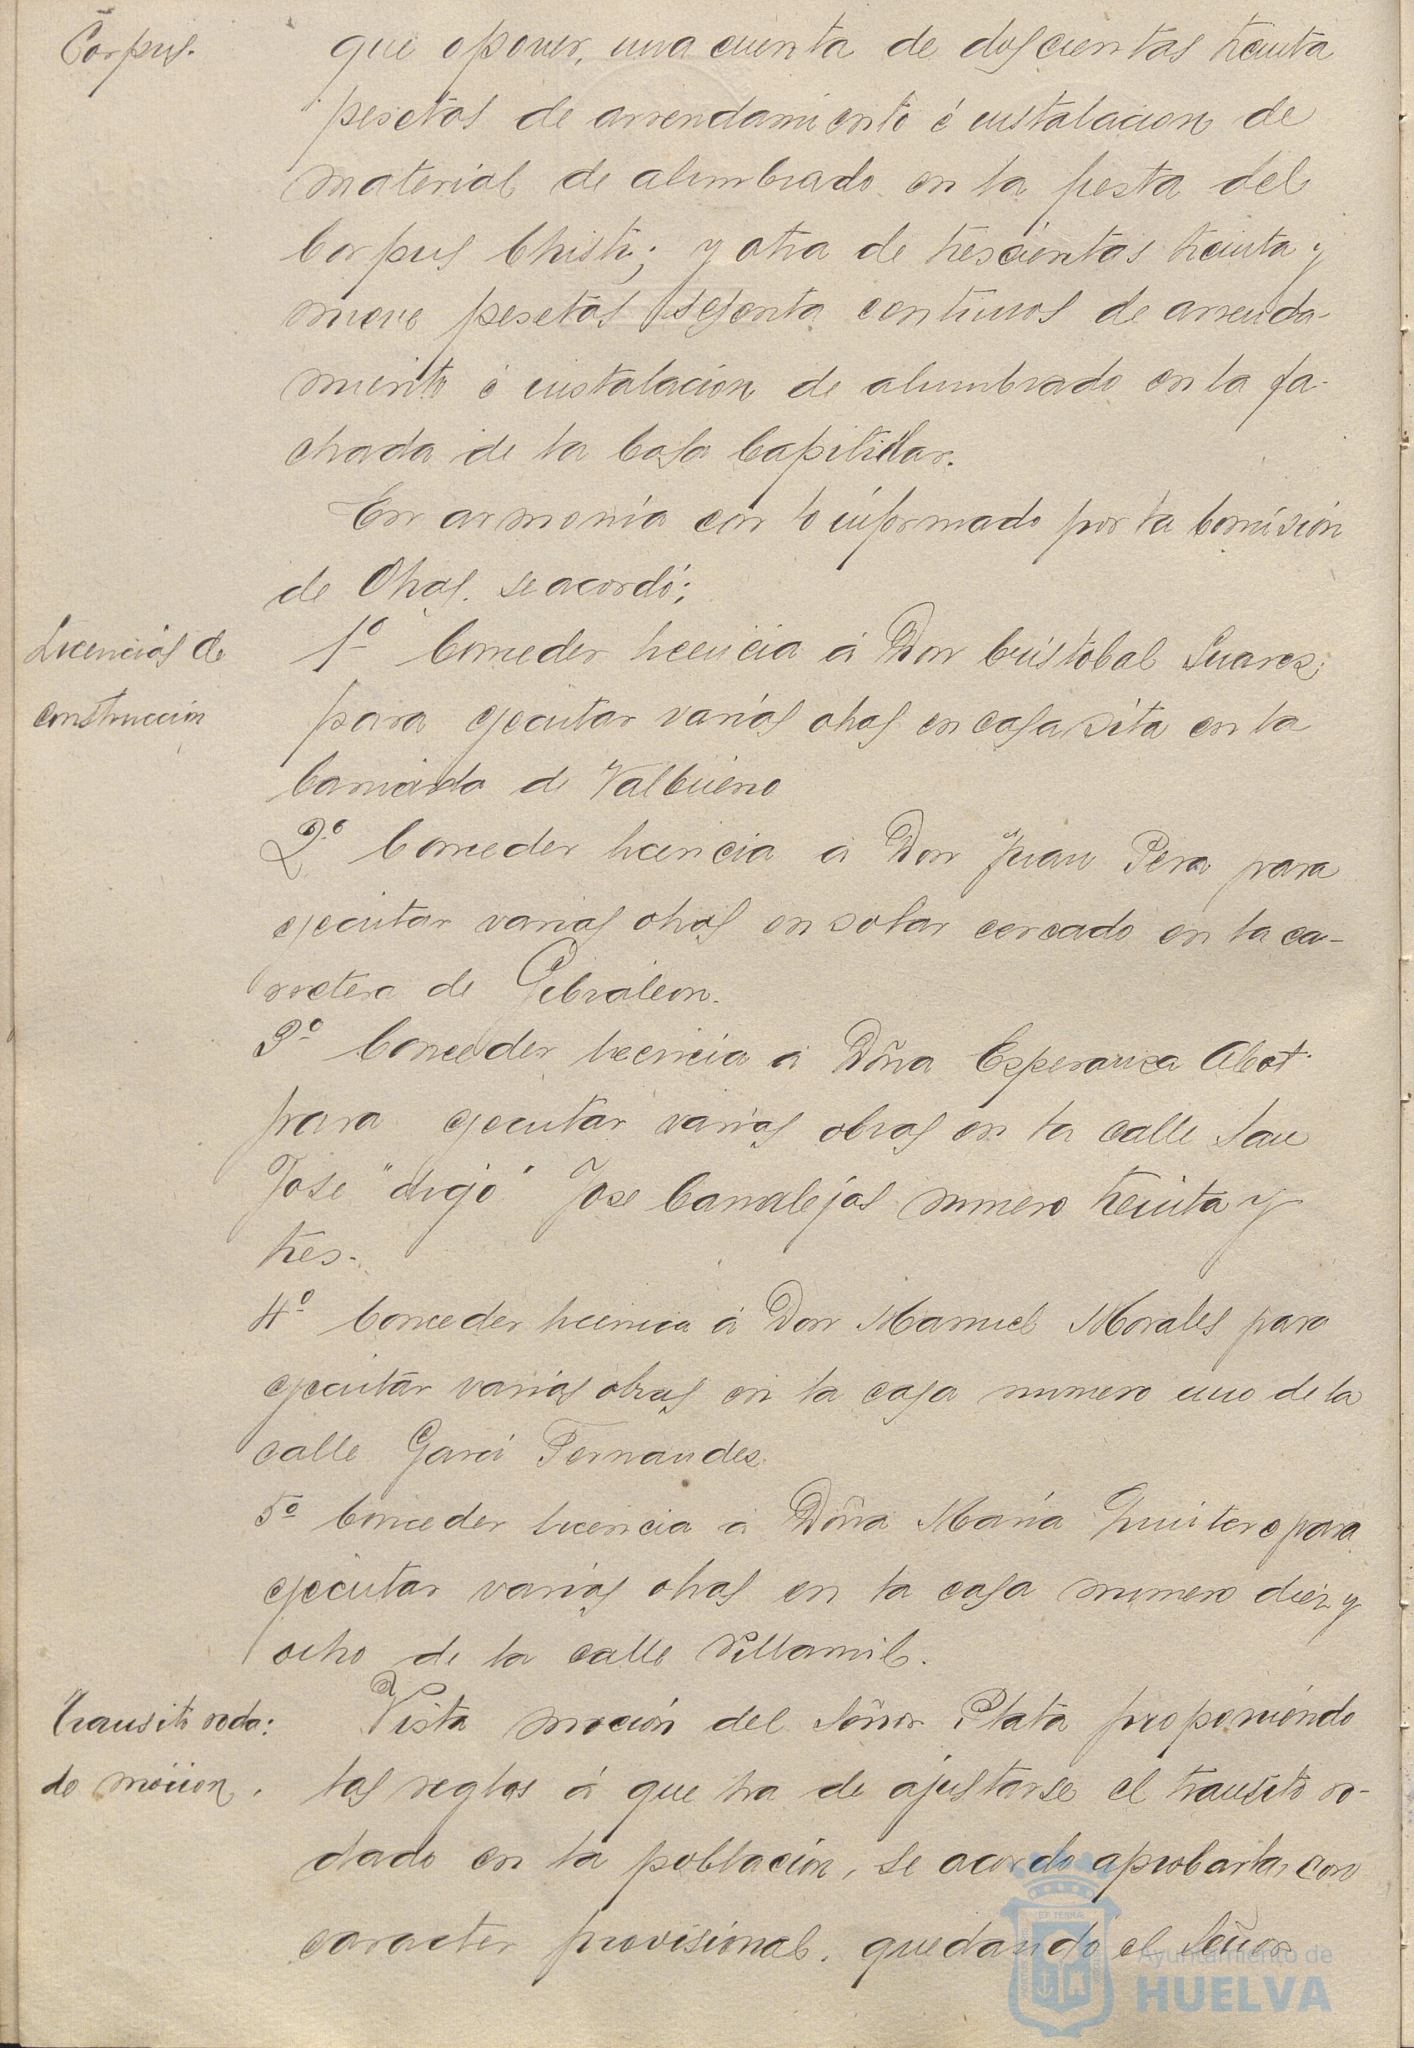 Corpus.
que oponer, una cuenta de doscientas treinta
pesetas de arrendamiento é instalacion de
material de alumbrado en la fiesta del
Corpus Christi; y otra de trescientas treinta y
nueve pesetas sesenta centimos de arrenda-
miento é instalacion de alumbrado en la fa-
chada de la Casa Capitular.
En armonía con lo informado por la Comisión
de Obras. se acordó;
Licencias de
construccion
1º Conceder licencia á Don Cristobal Suarez;
para ejecutar varias obras en casa sita en la
barriada de Valbueno
2º Conceder licencia á Don Juan Pera para
ejecutar varias obras en solar cercado en la ca-
rretera de Gibraleon.
3º Conceder licencia á Doña Esperanza Abot
para ejecutar varias obras en la calle San
José "digo" Jose Canalejas numero treinta y
tres.
4º Conceder licencia á Don Manuel Morales para
ejecutar varias obras en la casa numero uno de la
calle Garci Fernandez.
5º Conceder licencia á Doña María Quintero para
ejecutar varias obras en la casa numero diez y
ocho de la calle Villamil.
Transito roda:
do mocion.
Vista moción del Señor Plata proponiendo
las reglas á que ha de ajustarse el transito ro-
dado en la población, se acordo aprobarlas con
caracter provisional. quedando el Señor
Ayuntamiento de
HUELVA